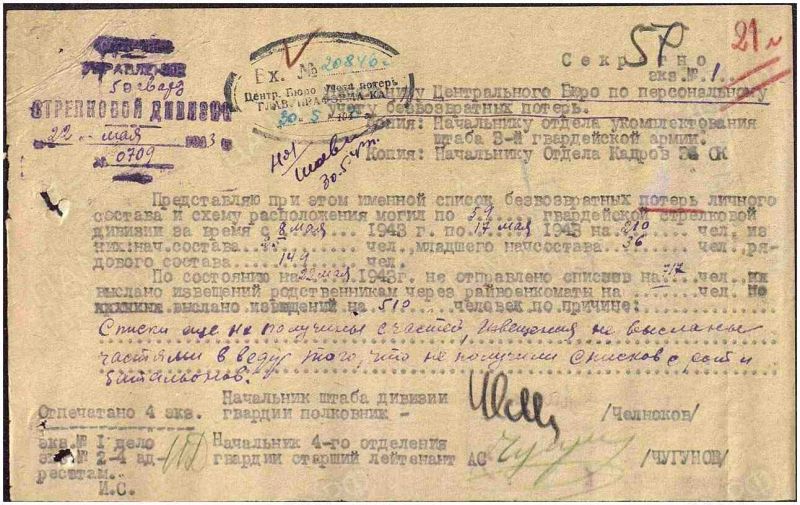 УПРАВЛЕНИЕ
59 гвард
СТРЕЛКОВОЙ ДИВИЗИИ
22 мая 1943 г
№ 0709
Вх. № 20846с
Центр. Бюро учета потерь
30 5 1943
30.5.43г.
57
21
Секретно
экз.№ 1.
Центрального Бюро по персональному
учету безвозвратных потерь.
Копия: Начальнику отдела укомплектования
штаба 3-й гвардейской армии.
Копия: Начальнику Отдела Кадров 34 СК
Представляю при этом именной список безвозвратных потерь личного
состава и схему расположения могил по 59.... гвардейской стрелковой
дивизии за время с 8 мая 1943 г. по 17 мая 1943 на 210 чел. из
них:нач.состава.. 25 чел.,младшего начсостава.. 36 чел., ря-
дового состава.. 149 чел.
По состоянию на 22 мая 1943г. не отправлено списков на 717 чел. их
выслано извещений родственникам через райвоенкоматы на чел. Не
хххххххх выслано извещений на 510 человек по причине:
Списки еще не получены с частей, Извещения не высланы
частями в веду того, что не получили Списков с рот и
батальонов.
Начальник штаба дивизии
гвардии полковник - /Челноков/
Отпечатано 4 экз.
экз.№ 1 дело
экз.№ 2-4 ад-
ресатам.
И.С.
Начальник 4-го отделения
гвардии старший лейтенант АС Чугун /ЧУГУНОВ/